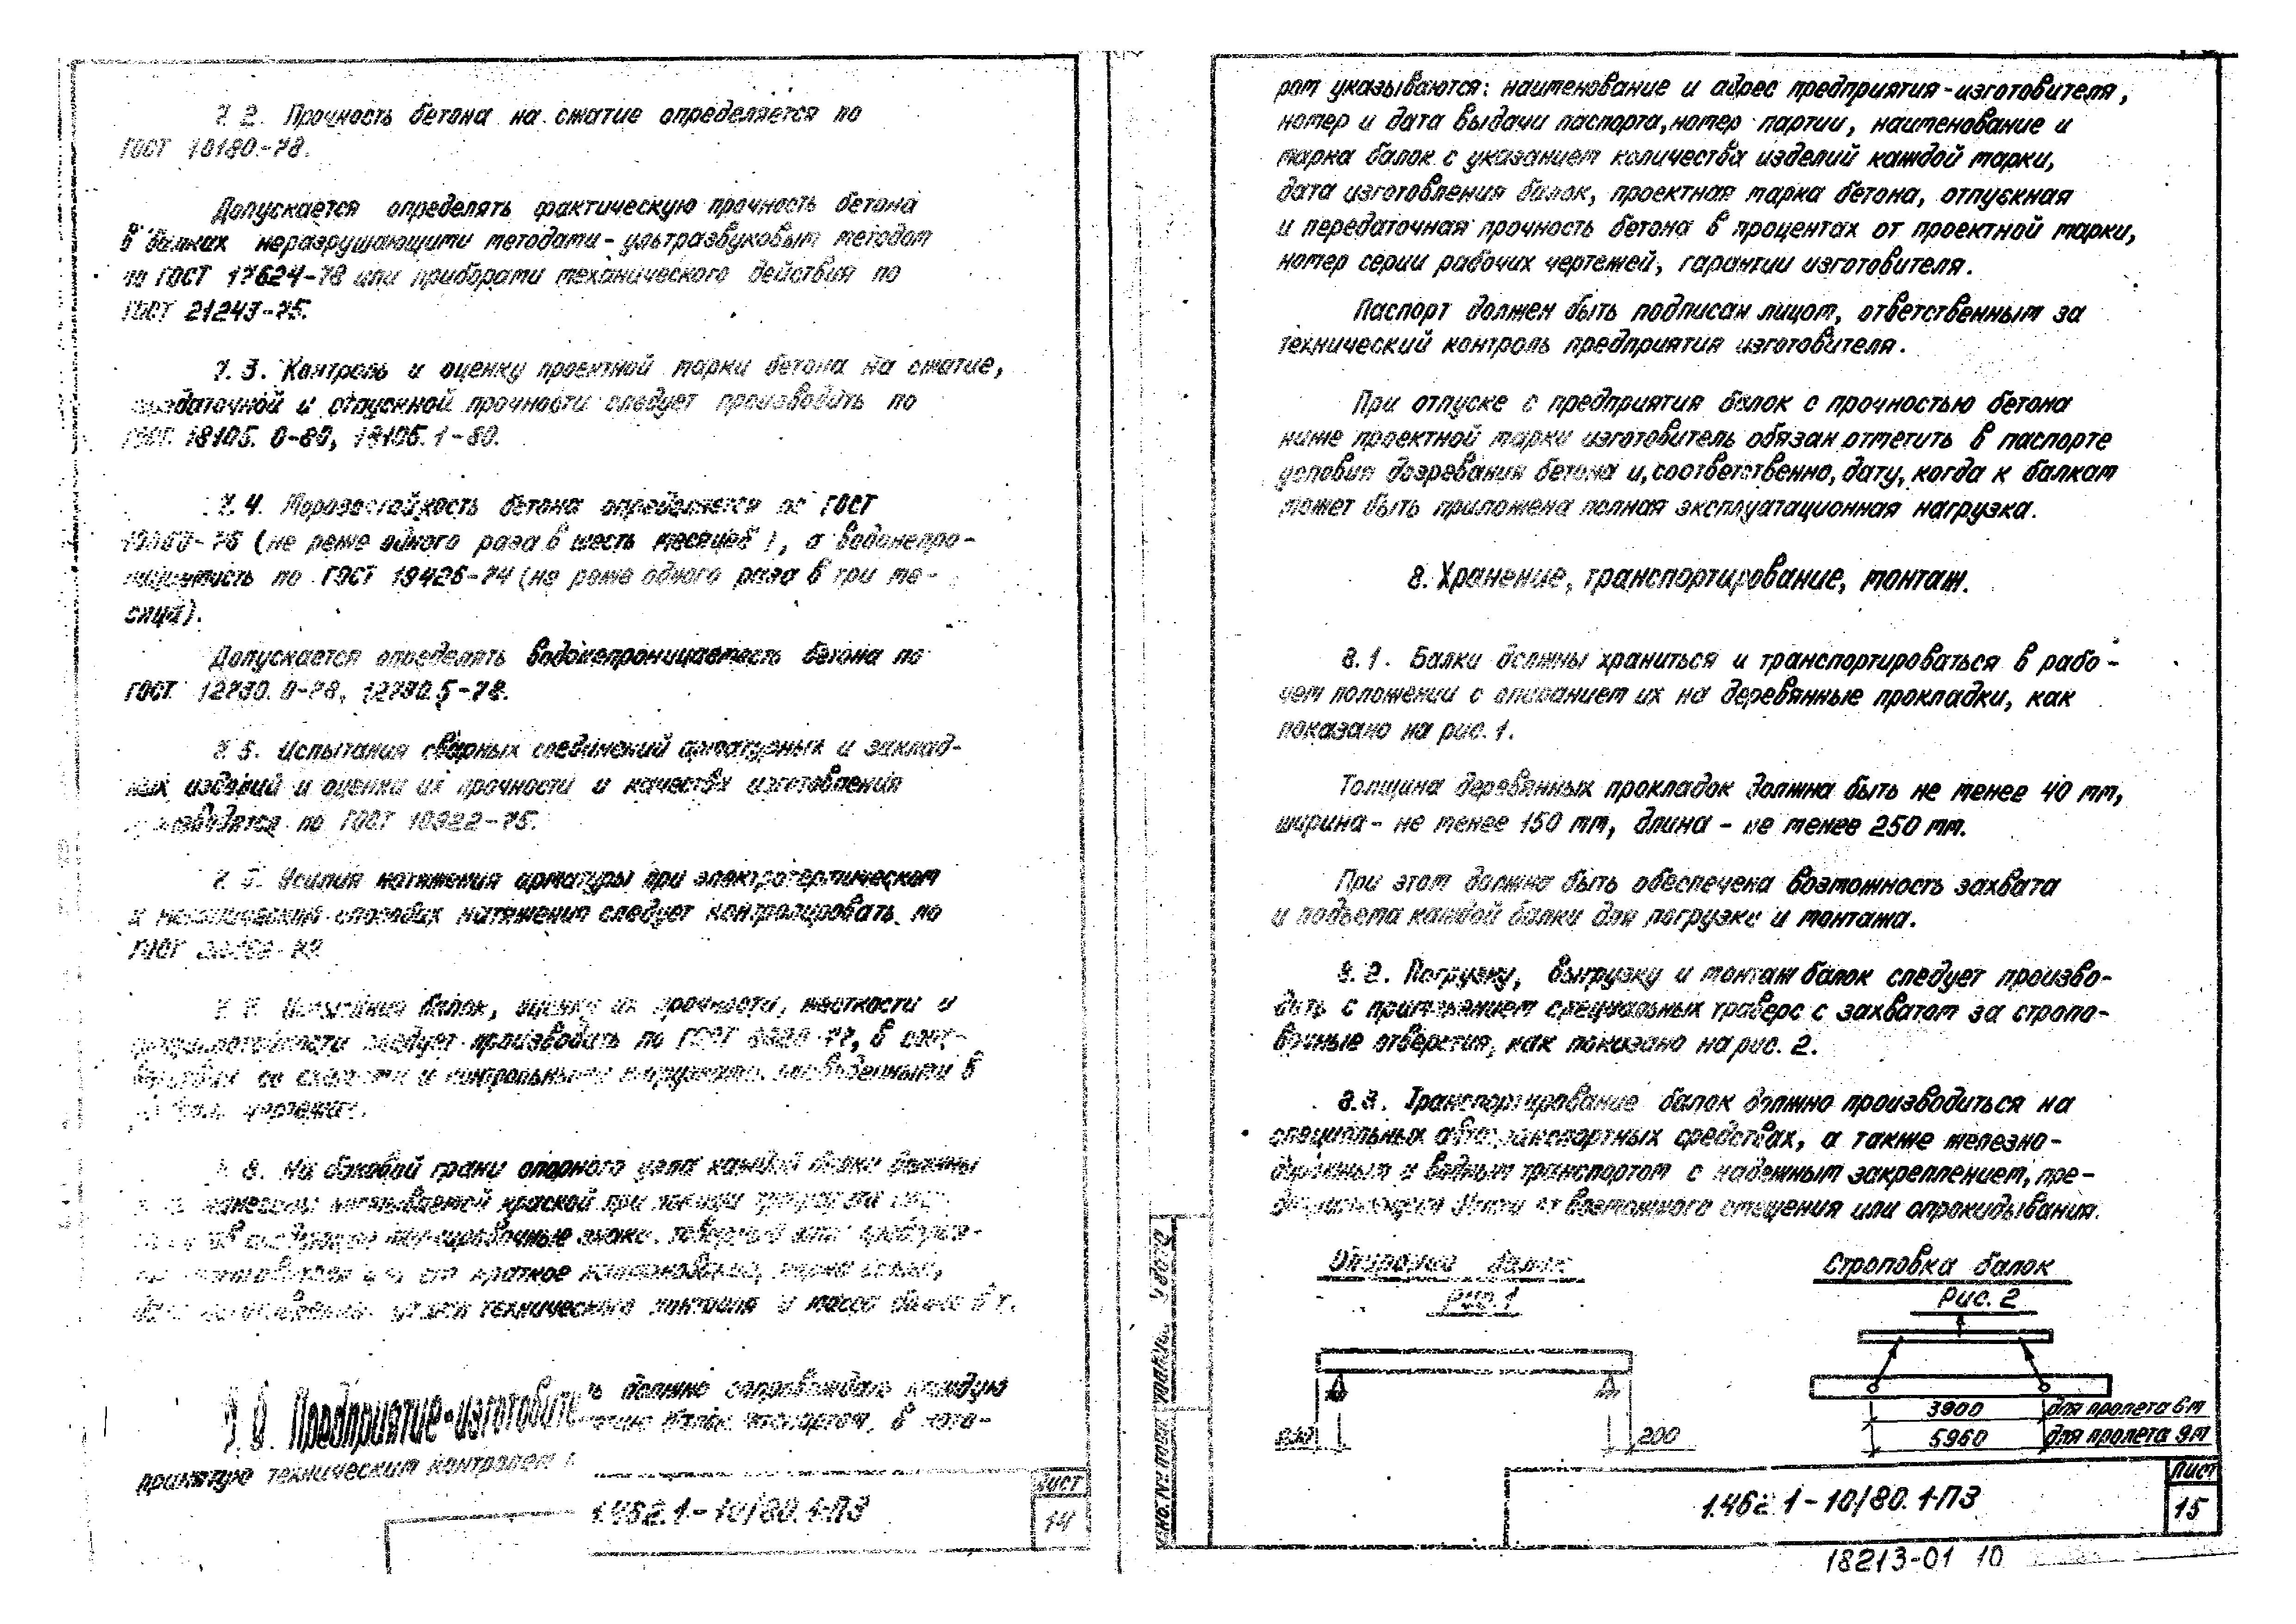 7.2. Прочность бетона на сжатие определяется по
ГОСТ 10180-78.
Допускается определять фактическую прочность бетона
в балках неразрушающими методами - ультразвуковым методом
по ГОСТ 17624-78 или приборами механического действия по
ГОСТ 21243-75.
7.3. Контроль и оценку проектной марки бетона на сжатие,
передаточной и отпускной прочности следует производить по
ГОСТ 18105.0-80, 18105.1-80.
7.4. Морозостойкость бетона определяется по ГОСТ
10060-76 (не реже одного раза в шесть месяцев), а водонепро-
ницаемость по ГОСТ 19426-74 (не реже одного раза в три ме-
сяца).
Допускается определять водонепроницаемость бетона по
ГОСТ 12730.0-78, 12730.5-78.
7.5. Испытания сварных соединений арматурных и заклад-
ных изделий и оценка их прочности и качества изготовления
производятся по ГОСТ 10922-75.
Усилия натяжения арматуры при электротермическом
и механическом способах натяжения следует контролировать по
ГОСТ
7.7. Испытания балок, оценку их прочности, жесткости и
трещиностойкости следует производить по ГОСТ 8829-77, в соот-
ветствии со схемами и контрольными нагрузками, приведенными в
чертежах.
8. На боковой грани опорного узла каждой балки должны
нанесены несмываемой краской при помощи
маркировочные знаки: товарный знак предприя-
изготовителя его краткое наименование, марка балки,
дата изготовления, штамп технического контроля и масса балки в т.
7.9. Предприятие-изготовитель должно сопровождать каждую
принятую техническим контролем партию балок паспортом, в кото-
1.462.1-10/80.1-ПЗ
Лист
14
ром указываются: наименование и адрес предприятия-изготовителя,
номер и дата выдачи паспорта, номер партии, наименование и
марка балок с указанием количества изделий каждой марки,
дата изготовления балок, проектная марка бетона, отпускная
и передаточная прочность бетона в процентах от проектной марки,
номер серии рабочих чертежей, гарантии изготовителя.
Паспорт должен быть подписан лицом, ответственным за
технический контроль предприятия изготовителя.
При отпуске с предприятия балок с прочностью бетона
ниже проектной марки изготовитель обязан отметить в паспорте
условия дозревания бетона и, соответственно, дату, когда к балкам
может быть приложена полная эксплуатационная нагрузка.
8. Хранение, транспортирование, монтаж.
8.1. Балки должны храниться и транспортироваться в рабо-
чем положении с опиранием их на деревянные прокладки, как
показано на рис. 1.
Толщина деревянных прокладок должна быть не менее 40 мм,
ширина - не менее 150 мм, длина - не менее 250 мм.
При этом должна быть обеспечена возможность захвата
и подъема каждой балки для погрузки и монтажа.
8.2. Погрузку, выгрузку и монтаж балок следует произво-
дить с применением специальных траверс с захватом за стропо-
вочные отверстия, как показано на рис. 2.
8.3. Транспортирование балок должно производиться на
специальных автотранспортных средствах, а также железно-
дорожным и водным транспортом с надежным закреплением, пре-
дохраняющим балки от возможного смещения или опрокидывания.
Опирание балок
Рис. 1
200
200
Строповка балок
Рис. 2
3900 для пролета 6 м
5960 для пролета 9 м
1.462.1-10/80.1-ПЗ
Лист
15
18213-01 10